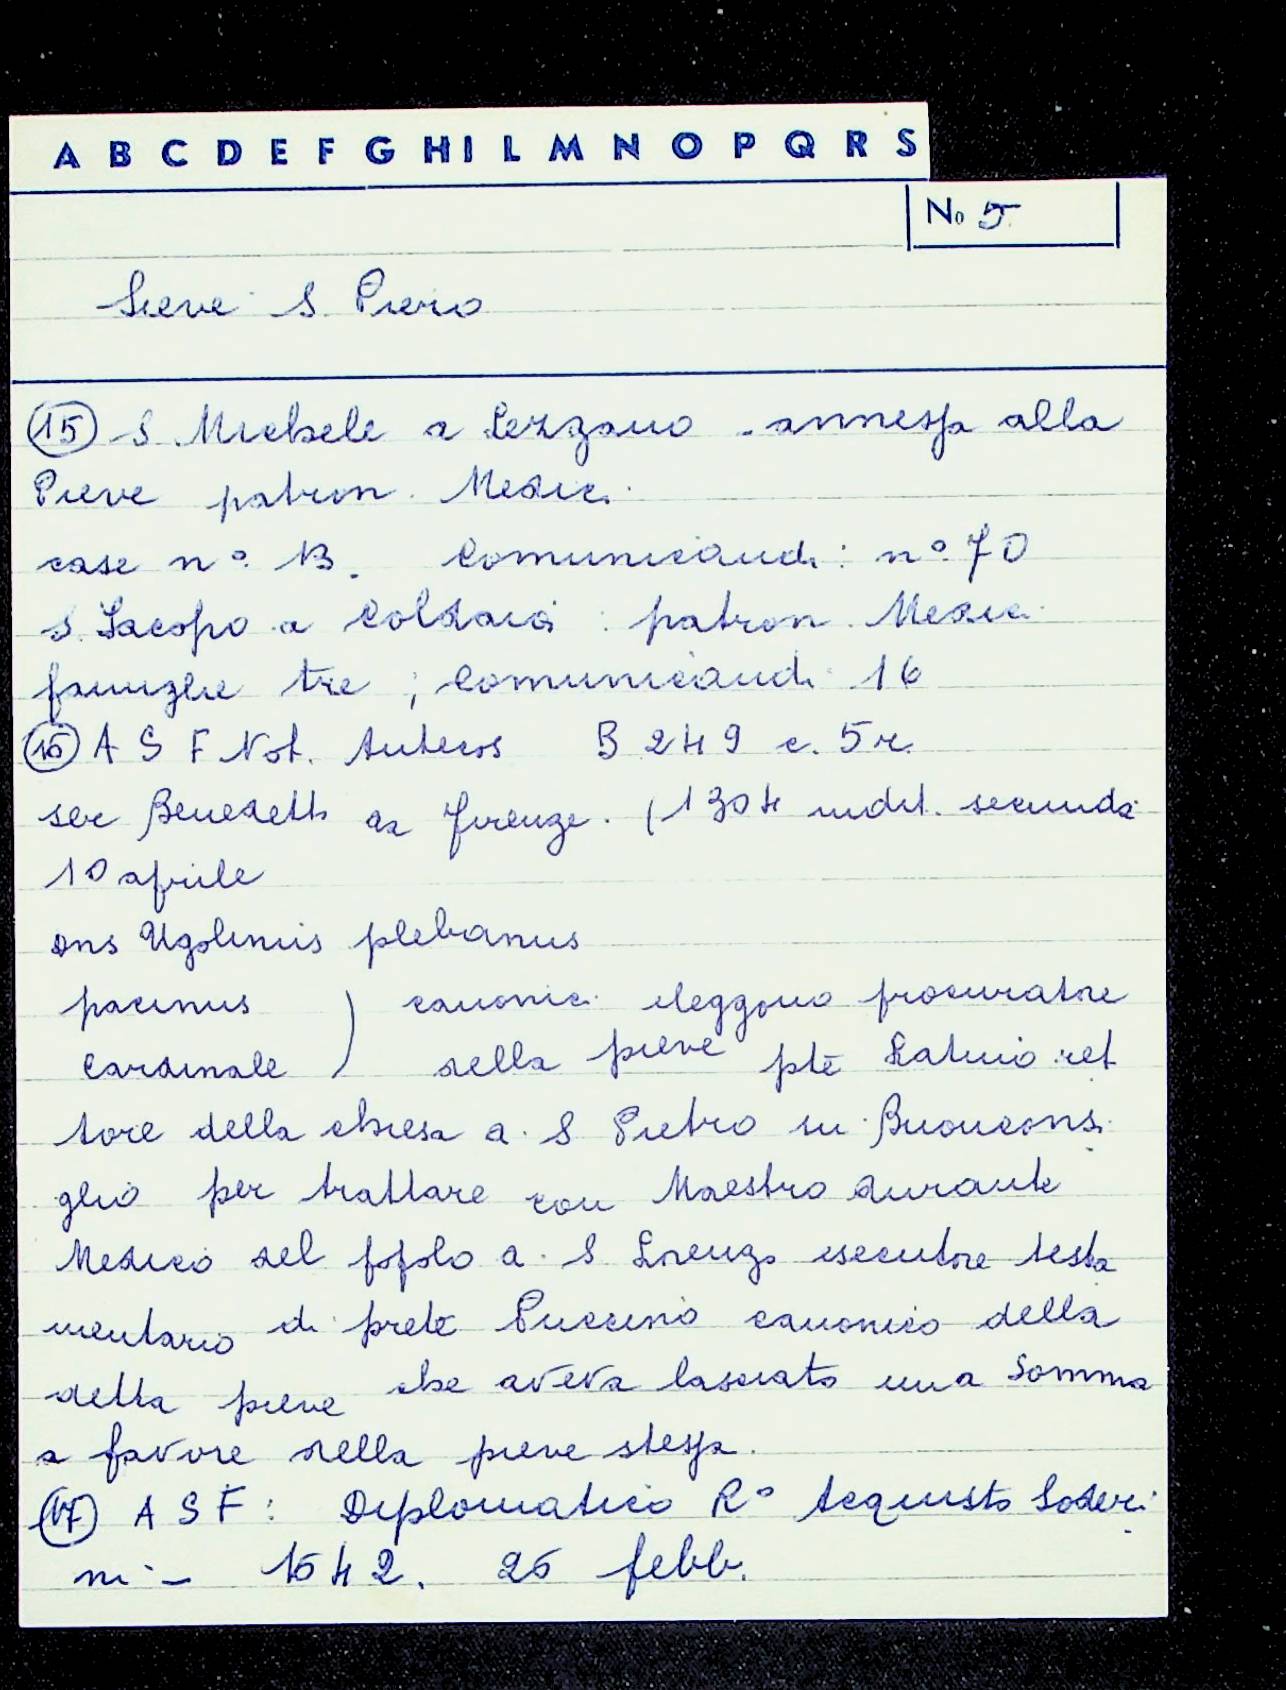 A B C D E F G H I L M N O P Q R S
No 5
Sieve S. Piero
(15) S. Michele a Lezzano - annessa alla
Pieve patron. Medici
case n° 13. Comunicandi: n° 70
S. Jacopo a Coldaia: patron. Medici
famiglie tre; Comunicandi 16
(16) A S F Not. Antecos B 249 c. 5r.
ser Benedetto da Firenze. (1304 indit. secunda
10 aprile
dns Ugolinus plebanus
pacinus ) canonici eleggono procuratore
Cardinale ) della pieve pte Latino ret
tore della chiesa a. S Pietro in Buonconsi
glio per trattare con Maestro Durante
Medico del popolo a. S Lorenzo esecutore testa
mentario di prete Puccino canonico della
detta pieve che aveva lasciato una somma
a favore della pieve stessa.
(17) A S F: Diplomatico R° Acquisto Soderi
ni - 1542. 26 febb.